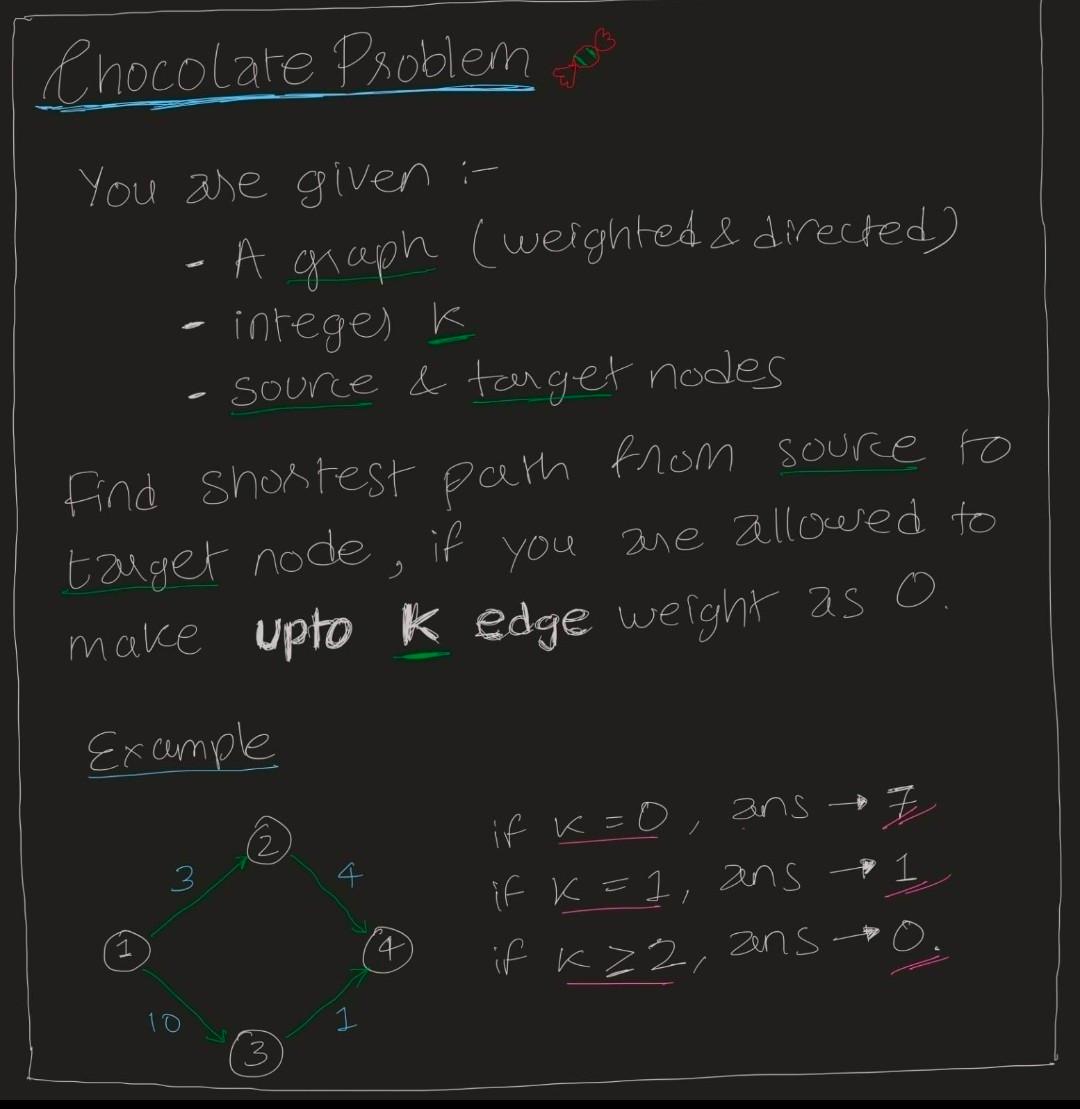 Chocolate Problem
You are given :-
- A graph (weighted & directed)
- integer K
- source & target nodes
Find shortest path from source to
target node, if you are allowed to
make upto K edge weight as 0.
Example
if K = 0, ans → 7
if K = 1, ans → 1
if K ≥ 2, ans → 0.
2
3 4
1 4
10 1
3